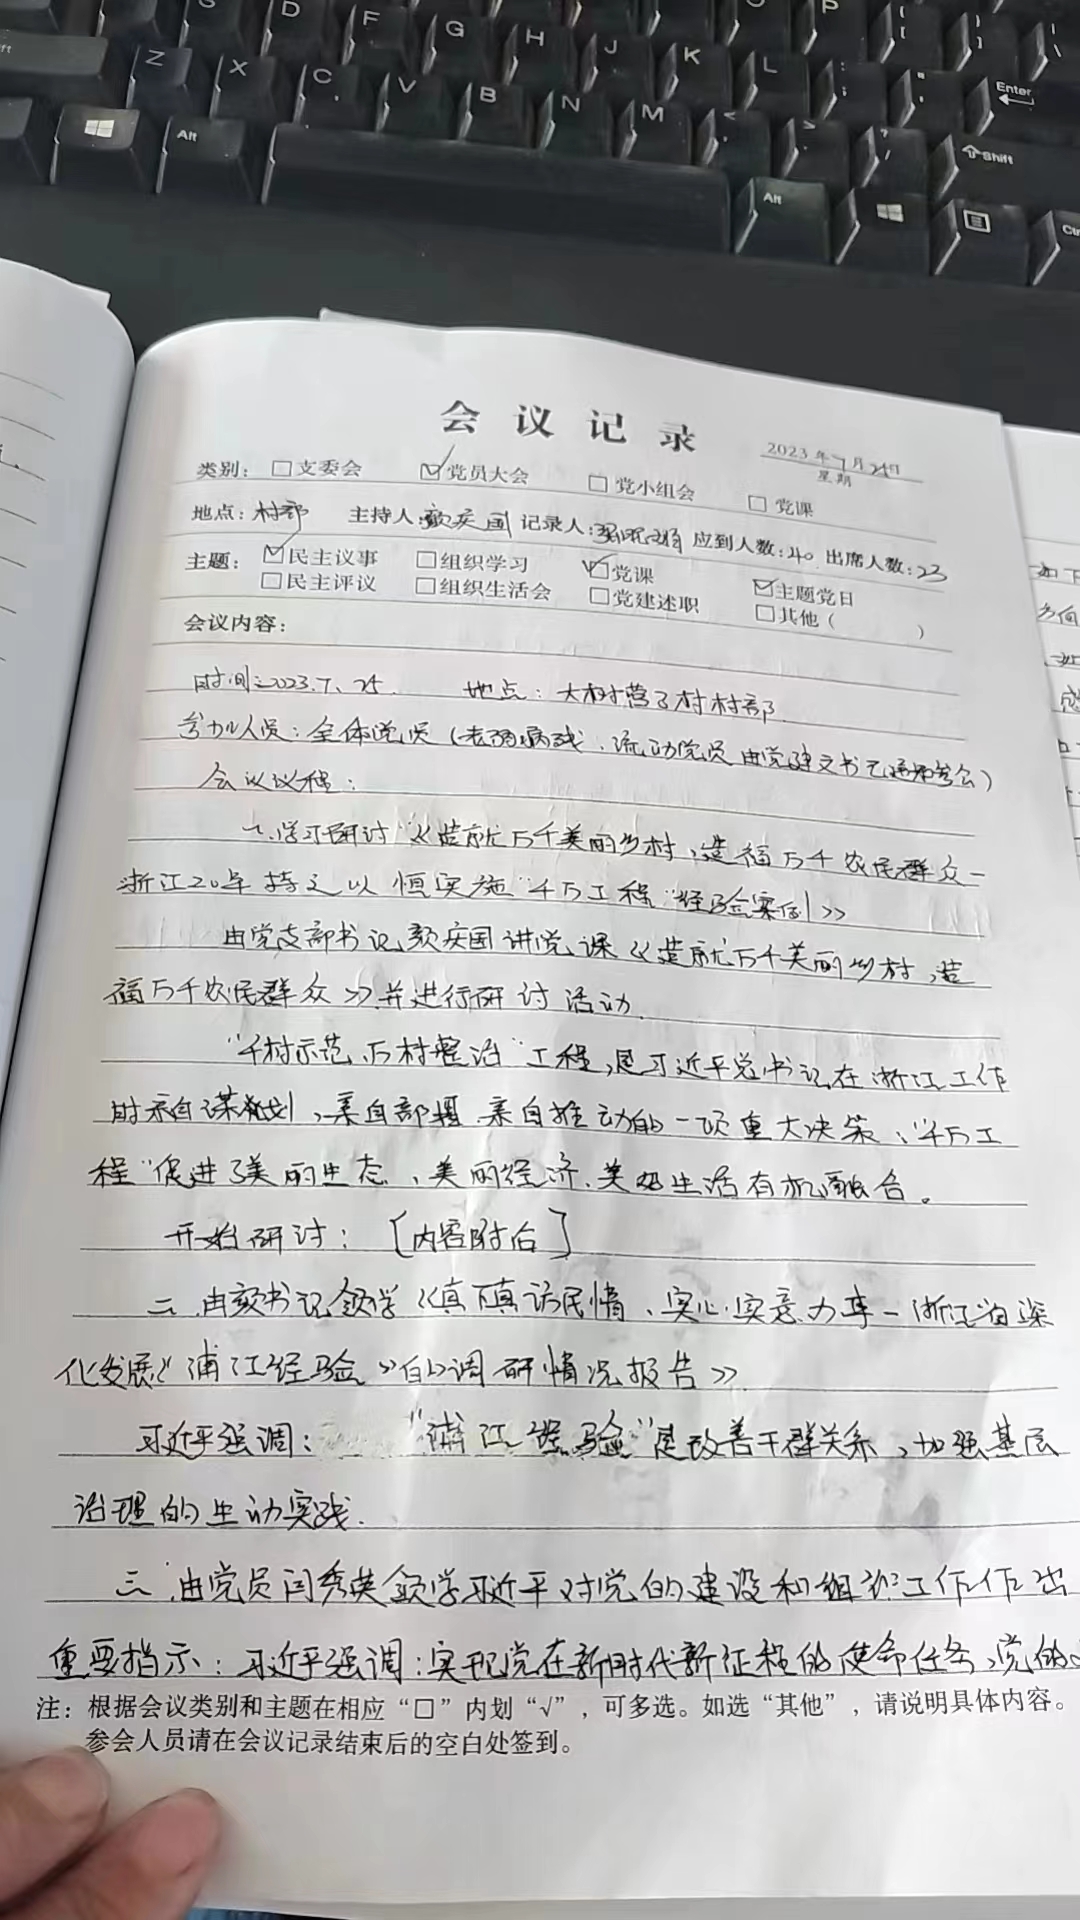 S D F G H J K L P
Z X C V B N M Enter
Alt Shift
Alt Ctrl
会议记录
2023年7月24日
星期
类别：□支委会 ☑党员大会 □党小组会 □党课
地点：村部 主持人： 国 记录人： 应到人数：40 出席人数：23
主题：☑民主议事 □组织学习 ☑党课 ☑主题党日
□民主评议 □组织生活会 □党建述职 □其他（ ）
会议内容：
时间：2023.7.25 地点：大树营子村村部
参加人员：全体党员（老弱病残、流动党员由党建文书 通知参会）
会议议程：
一、学习研讨《造就万千美丽乡村，造福万千农民群众—
浙江20年持之以恒实施“千万工程”经验案例》
由党支部书记 庆国讲党课《造就万千美丽乡村，造
福万千农民群众》并进行研讨活动.
“千村示范、万村整治”工程，是习近平总书记在浙江工作
时亲自谋划，亲自部署 亲自推动的一项重大决策、“千万工
程”促进了美丽生态、美丽经济、美好生活有机融合。
开始研讨：［内容附后］
二、由 书记领学《真下真访民情、实心实意办事—浙江省深
化发展《浦江经验》的调研情况报告》
习近平强调： “浦江经验”是改善干群关系，加强基层
治理的生动实践.
三.由党员闫秀英领学习近平对党的建设和组织工作作出
重要指示：习近平强调：实现党在新时代新征程的使命任务，党的
注：根据会议类别和主题在相应“□”内划“√”，可多选。如选“其他”，请说明具体内容。
参会人员请在会议记录结束后的空白处签到。